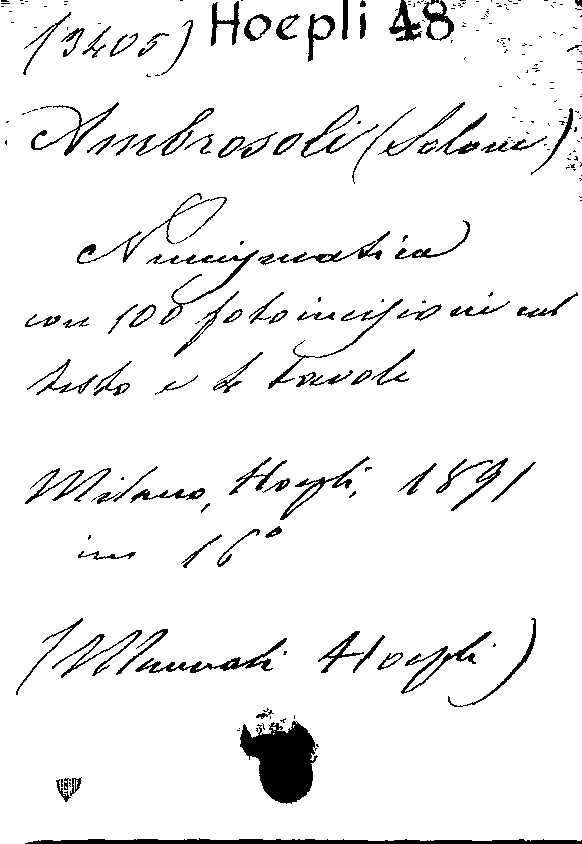 (3405) Hoepli 48
Ambrosoli (Solone)
Numismatica
con 100 fotoincisioni nel
testo e 4 tavole
Milano, Hoepli, 1891
in 16°
(Manuali Hoepli)